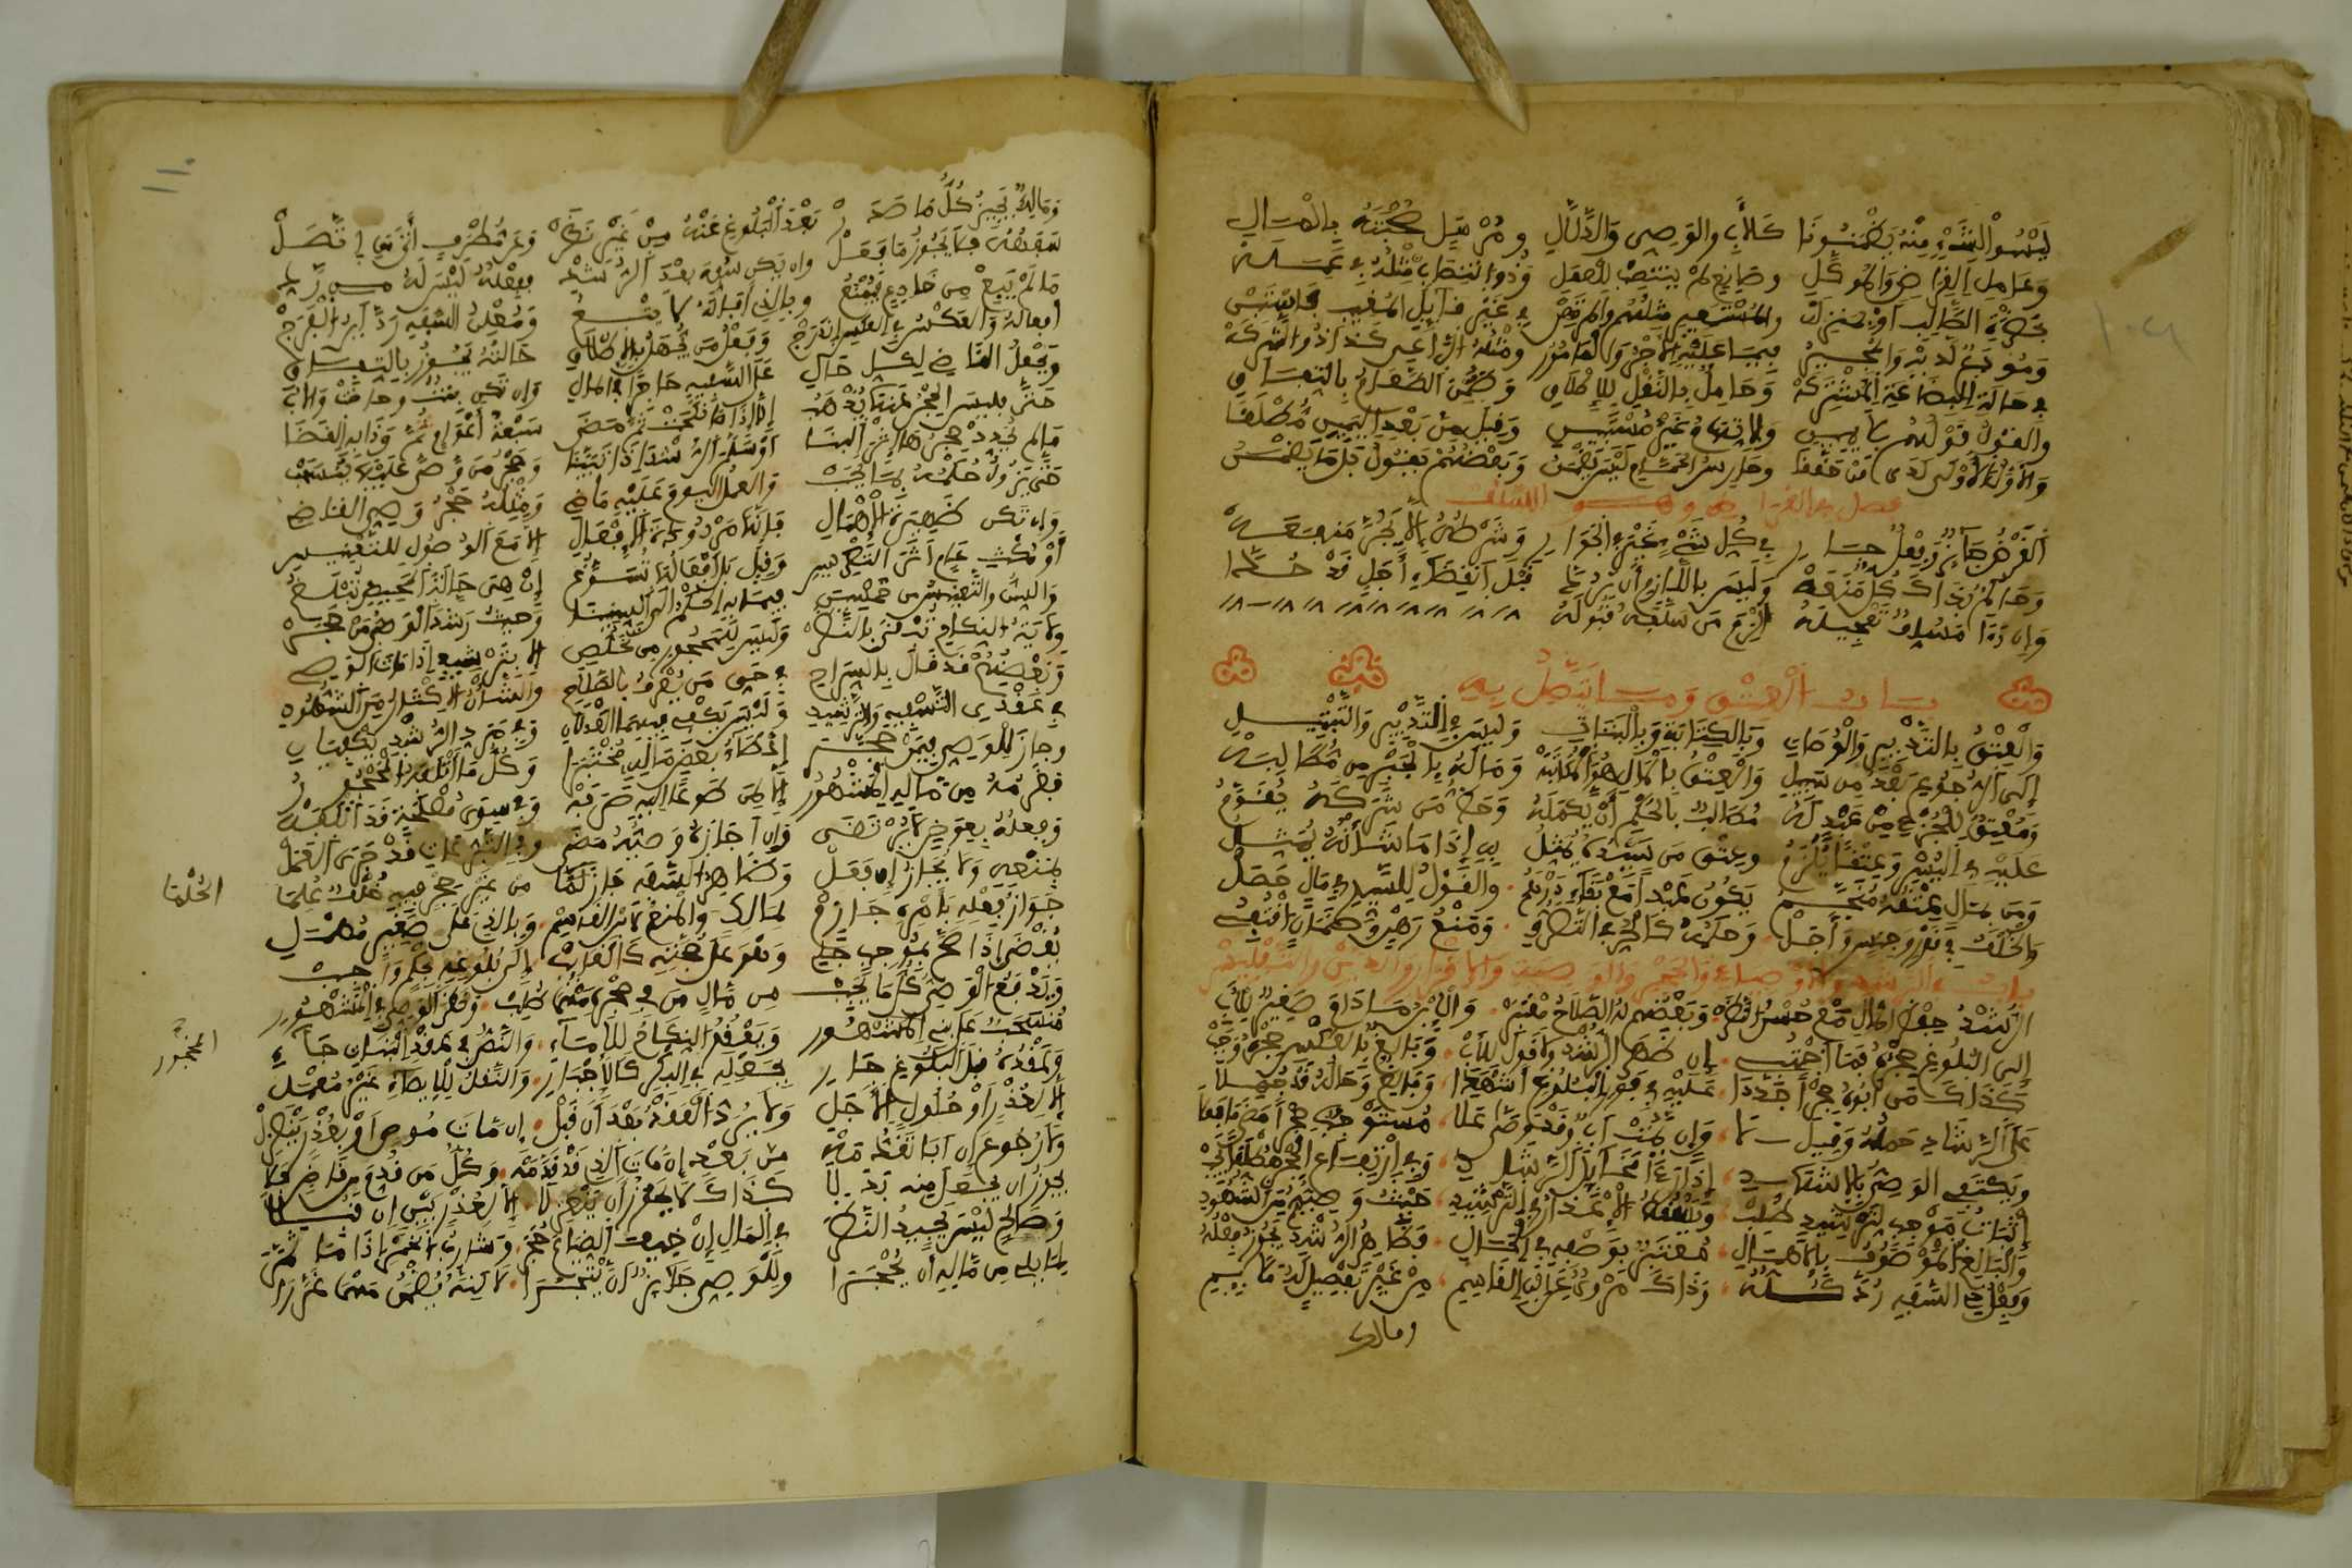 لَيْسُوا لِشَيْءٍ مِنْهُ يَضْمَنُونَا كَالأَبِ والوَصِي وَالدَّلَّالِ ومُرْسَلٍ صُحْبَتَهُ بِالْمَالِ
وَعَامِلِ القِرَاضِ وَالمُوَكَّلِ وصَانِعٍ لَمْ يَنْتَصِبْ لِلْعَمَلِ وَذُو انْتِصَابٍ مِثْلُهُ فِي عَمَلِهْ
بِحَضْرَةِ الطَّالِبِ أَوْ بِمَنْزِلِهْ والمُسْتَعِيرُ مِثْلُهُمْ وَالمُرْتَهِنْ فِي غَيْرِ قَابِلِ المَغِيبِ فَاسْتَبِنْ
وَمُودَعٌ لَدَيْهِ وَالأَجِيرُ فِيمَا عَلَيْهِ الأَجْرُ وَالمَأْمُورُ ومِثْلُهُ الرَّاعِي كَذَا ذُو الشَّرِكَهْ
فِي حَالَةِ البِضَاعَةِ المُشْتَرَكَهْ وَحَامِلٌ لِلثِّقْلِ بِالإِطْلَاقِ وَضُمِّنَ الطَّعَامَ بِاتِّفَاقِ
والقَوْلُ قَوْلُهُمْ بِلَا يَمِينِ والاتِّهَامُ غَيْرُ مُسْتَبِينِ وَقِيلَ مِنْ بَعْدِ اليَمِينِ مُطْلَقَا
وَالأَوَّلُ الأَوْلَى لَدَى مَنْ حَقَّقَا وحَارِسُ الحَمَّامِ لَيْسَ يَضْمَنُ وَبَعْضُهُمْ يَقُولُ بَلْ يُضَمَّنُ
فصل في القرض وهو السلف
اَلْقَرْضُ جَائِزٌ وَفِعْلٌ جَارِ فِي كُلِّ شَيْءٍ مَا عَدَا الجَوَارِي وَشَرْطُهُ أَلَّا يَجُرَّ مَنْفَعَهْ
وَحَاكِمٌ بِذَاكَ كُلٌّ مَنَعَهْ وَلَيْسَ بِاللَّازِمِ أَنْ يُرَدَّا قَبْلَ انْقِضَاءِ أَجَلٍ قَدْ حُدَّا
وَإِنْ رَأَى مُسَلِّفٌ تَعْجِيلَهُ أُلْزِمَ مَنْ سَلَّفَهُ قَبُولَهُ
باب العتق وما يتصل به
وَالْعِتْقُ بِالتَّدْبِيرِ وَالْوَصَاةِ وَبِالكِتَابَةِ وَبِالْبَتَاتِ وَلَيْسَ فِي التَّدْبِيرِ وَالتَّبْتِيلِ
إِلَى الرُّجُوعِ بَعْدُ مِنْ سَبِيلِ وَالْعِتْقُ بِالْمَالِ هُوَ الْمُكَاتَبَهْ وَمَا لَهُ بِالْجَبْرِ مِنْ مُطَالَبَهْ
وَمُعْتِقٌ لِلْجُزْءِ مِنْ عَبْدٍ لَهُ مُطَالَبٌ بِالحُكْمِ أَنْ يُكَمِّلَهُ وَحَظُّ مَنْ شَرَكَهُ يُقَوَّمُ
عَلَيْهِ فِي اليُسْرِ وَعِتْقًا يَلْزَمُ وعِتْقُ مَنْ سَيِّدُهُ يُمَثِّلُ بِهِ إِذَا مَا شَانَهُ يُبَتَّلُ
وَمَنْ بِمَالٍ عِتْقُهُ مُنَجَّمُ يَكُونُ عَبْدًا مَعْ بَقَاءِ دِرْهَمِ والقَوْلُ لِلسَّيِّدِ فِي مَالٍ حَصَلْ
وَالخُلْفُ فِي قَدْرٍ وَجِنْسٍ وَأَجَلْ وَحُكْمُهُ كَالحُرِّ فِي التَّصَرُّفِ وَمَنْعُ رَهْنٍ وَضَمَانٍ اقْتُفِي
باب في الرشد والأوصياء والحجر والوصية والإقرار والدين والتفليس
الرُّشْدُ حِفْظُ المَالِ مَعْ حُسْنِ النَّظَرْ وَبَعْضُهُمْ لَهُ الصَّلَاحُ مُعْتَبَرْ وَالاِبْنُ مَا دَامَ صَغِيرًا لِلْأَبِ
إِلَى البُلُوغِ حَجْرُهُ فِيمَا اجْتُبِي إِنْ ظَهَرَ الرُّشْدُ وَلَا قَوْلَ لِأَبْ وَبَالِغٌ بِالعَكْسِ حَجْرُهُ وَجَبْ
كَذَاكَ مَنْ أَبُوهُ حَجْرًا جَدَّدَا عَلَيْهِ فِي فَوْرِ البُلُوغِ أَشْهَدَا وَبَالِغٌ وَحَالُهُ قَدْ جُهِلَا
عَلَى الرَّشَادِ حَمْلُهُ وَقِيلَ لَا وَإِنْ يَمُتْ أَبٌ وَقَدْ وَصَّى عَلَى مُسْتَوْجِبٍ حَجْرًا مَضَى مَا فَعَلَا
وَيَكْتَفِي الوَصِيُّ بِالإِشْهَادِ إِذَا رَأَى مَخَايِلَ الرَّشَادِ وَفِي ارْتِفَاعِ الحَجْرِ مُطْلَقًا يَجِبْ
إِثْبَاتُ مُوجِبٍ لِتَرْشِيدٍ طُلِبْ وَيَسْقُطُ الإِعْذَارُ فِي التَّرْشِيدِ حَيْثُ وَصِيُّهُ مِنَ الشُّهُودِ
وَالبَالِغُ المَوْصُوفُ بِالإِهْمَالِ مُعْتَبَرٌ بِوَصْفِهِ فِي الحَالِ فَظَاهِرُ الرُّشْدِ يَجُوزُ فِعْلُهُ
وَفِعْلُ ذِي السَّفَهِ رُدَّ كُلُّهُ وَذَاكَ مَرْوِيٌّ عَنِ ابْنِ القَاسِمِ مِنْ غَيْرِ تَفْصِيلٍ لَهُ مُلَائِمِ
ومالك
١١٠
وَمَالِكٌ يُجِيزُ كُلَّ مَا صَدَرْ بَعْدَ البُلُوغِ عَنْهُ مِنْ غَيْرِ نَظَرْ وَعَنْ مُطَرِّفٍ أَتَى مَنِ اتَّصَلْ
سَفَهُهُ فَلَا يَجُوزُ مَا فَعَلْ وإن يكن سُفِّهَ بَعْدَ الرُّشْدِ فَفِعْلُهُ لَيْسَ لَهُ مِنْ رَدِّ
مَا لَمْ يَبِعْ مِنْ خَادِعٍ فَيُمْنَعُ وبالذي أَفَاتَهُ لَا يُتْبَعُ وَمُعْلِنُ السَّفَهِ رَدَّ ابْنُ الفَرَجْ
أَفْعَالَهُ وَالعَكْسُ فِي العَكْسِ انْدَرَجْ وَفِعْلُ مَنْ يُجْهَلُ بِالإِطْلَاقِ حَالَتُهُ يَجُوزُ بِاتِّفَاقِ
وَيَجْعَلُ القَاضِي بِكُلِّ حَالِ عَلَى السَّفِيهِ حَاجِرًا فِي المَالِ وَإِنْ تَكُنْ بِنْتٌ وَحَاضَتْ وَالأَبُ
حَيٌّ فَلَيْسَ الحَجْرُ عَنْهَا يَذْهَبُ إِلَّا إِذَا مَا نُكِحَتْ ثُمَّ مَضَى سَبْعَةُ أَعْوَامٍ وَذَا بِهِ القَضَا
مَا لَمْ يُجَدِّدْ حَجْرَهَا إِثْرَ البِنَا أَوْ سَلِمَ الرُّشْدُ إِذَا تَبَيَّنَا وَحَجْرُ مَنْ وَصَّى عَلَيْهَا يَنْسَحِبْ
حَتَّى يَزُولَ حُكْمُهُ بِمَا يَجِبْ وَالعَمَلُ اليَوْمَ عَلَيْهِ مَاضِي وَمِثْلُهُ حَجْرُ وَصِيِّ القَاضِي
وَإِنْ تَكُنْ ظَاهِرَةَ الإِهْمَالِ فَإِنَّهَا مَرْدُودَةُ الأَفْعَالِ إِلَّا مَعَ الوُصُولِ لِلتَّعْنِيسِ
أَوْ مُكْثِ عَامٍ أَثَرَ التَّعْرِيسِ وَقِيلَ بَلْ أَفْعَالُهَا تُسَوَّغُ إِنْ هِيَ حَالَةَ المَحِيضِ تَبْلُغُ
وَالسِّنُّ فِي التَّعْنِيسِ مِنْ خَمْسِينَ فِيمَا بِهِ الحُكْمُ إِلَى السِّتِّينَا وَحَيْثُ رَشَّدَ الوَصِيُّ مَنْ حَجَرْ
وِلَايَةُ النِّكَاحِ تَبْقَى بِالنَّظَرْ وَلَيْسَ لِلْمَحْجُورِ مِنْ تَخَلُّصِ إِلَّا بِتَرْشِيدٍ إِذَا مَاتَ الوَصِي
وَبَعْضُهُمْ قَدْ قَالَ بِالسَّرَاحِ فِي حَقِّ مَنْ يُعْرَفُ بِالصَّلَاحِ وَالشَّأْنُ الإِكْثَارُ مِنَ الشُّهُودِ
فِي عَقْدَيِ التَّسْفِيهِ وَالتَّرْشِيدِ وَلَيْسَ يَكْفِي فِيهِمَا العَدْلَانِ وَفِي مَرَدِّ الرُّشْدِ يَكْفِيَانِ
وجاز للوصي فيمن حجرا إِعْطَاءُ بَعْضِ مَالِهِ مُخْتَبِرَا وَكُلُّ مَا أَتْلَفَهُ المَحْجُورُ
فَغُرْمُهُ مِنْ مَالِهِ المَشْهُورُ إِلَّا لِمَنْ طَوْعًا إِلَيْهِ صَرَفَهْ وَفِي سِوَى مَصْلَحَةٍ قَدْ أَتْلَفَهْ
وَفِعْلُهُ بِعِوَضٍ لَا يُرْتَضَى وَإِنْ أَجَازَهُ وَصِيُّهُ مَضَى وَفِي التَّبَرُّعَاتِ قَدْ جَرَى العَمَلْ
بِمَنْعِهِ وَلَا يُجَازُ إِنْ فَعَلْ وَظَاهِرُ السَّفَهِ جَازَ الحُلُمَا مِنْ غَيْرِ حَجْرٍ فِيهِ خُلْفٌ عُلِمَا
الحُلْمَا
جَوَازُ فِعْلِهِ بِأَمْرٍ لَازِمِ لِمَالِكٍ وَالمَنْعُ لِابْنِ القَاسِمِ وَبِالَّذِي عَلَى صَغِيرٍ مُهْمَلِ
يُقْضَى إِذَا صَحَّ بِمُوجِبٍ جَلِي وَهْوَ عَلَى حُجَّتِهِ كَالغَائِبْ إِلَى بُلُوغِهِ بِحُكْمٍ وَاجِبْ
وَيَدْفَعُ الوَصِيُّ كُلَّ مَا يَجِبْ مِنْ مَالِ مَنْ فِي حَجْرِهِ مَهْمَا طُلِبْ وَنَظَرُ الوَصِيِّ فِي المَشْهُورِ
المحجُور
مُنْسَحِبٌ عَلَى بَنِي المَشْهُورِ وَيَعْقِدُ النِّكَاحَ لِلْإِمَاءِ وَالنَّصُّ فِي عَقْدِ البَنَاتِ جَاءِ
وَعَقْدُهُ قَبْلَ البُلُوغِ جَارِ بِجَعْلِهِ فِي البِكْرِ كَالإِجْبَارِ وَالنَّقْلُ لِلْإِيصَاءِ غَيْرُ مُعْمَلِ
إِلَّا لِعُذْرٍ أَوْ حُلُولِ الأَجَلِ وَلَا يُرَدُّ العَقْدُ بَعْدَ أَنْ قَبِلْ إِنْ مَاتَ مُوصٍ أَوْ بِعُذْرٍ يَنْعَزِلْ
وَلَا رُجُوعَ إِنْ أَبَى تَقَدُّمَهْ مِنْ بَعْدِ أَنْ مَاتَ الَّذِي قَدْ قَدَّمَهْ وَكُلُّ مَنْ قُدِّمَ مِنْ قَاضٍ فَلَا
يَجُوزُ أَنْ يَجْعَلَ مِنْهُ بَدَلَا كَذَاكَ لَا يَجُوزُ أَنْ يَنْعَزِلَا إِلَّا لِعُذْرٍ بَيِّنٍ إِنْ قَبِلَا
وَصَالِحٌ لَيْسَ يُجِيدُ النَّظَرَا فِي المَالِ إِنْ خِيفَ الضَّيَاعُ حُجِرَا وَشَارِبُ الخَمْرِ إِذَا مَا ثَمَّرَا
لِمَا يَلِي مِنْ مَالِهِ لَنْ يُحْجَرَا ولِلْوَصِيِّ جَائِزٌ أَنْ يَتْجَرَا لَكِنَّهُ يَضْمَنُ مَهْمَا غَرَّرَا